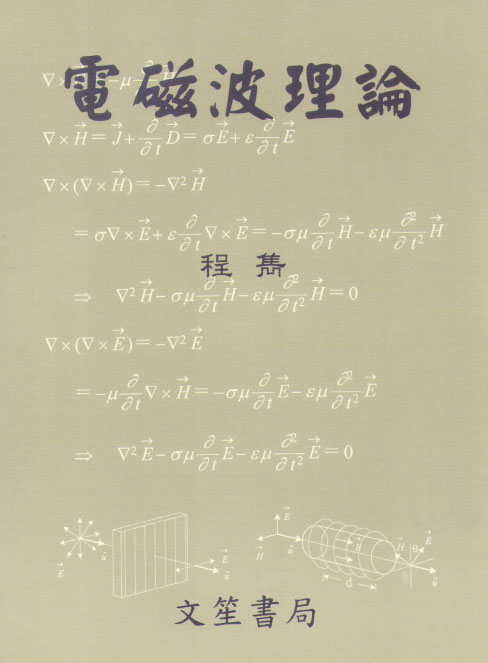 電磁波理論
∇×H⃗=J⃗+∂/∂t D⃗=σE⃗+ε∂/∂t E⃗
∇×(∇×H⃗)=−∇²H⃗
=σ∇×E⃗+ε∂/∂t ∇×E⃗=−σμ∂/∂t H⃗−εμ∂²/∂t² H⃗
程 雋
⇒ ∇²H⃗−σμ∂/∂t H⃗−εμ∂²/∂t² H⃗=0
∇×(∇×E⃗)=−∇²E⃗
=−μ∂/∂t ∇×H⃗=−σμ∂/∂t E⃗−εμ∂²/∂t² E⃗
⇒ ∇²E⃗−σμ∂/∂t E⃗−εμ∂²/∂t² E⃗=0
E⃗ û E⃗ u⃗
E⃗ H⃗ û H⃗ H⃗ 0 E⃗ u⃗
d
文笙書局